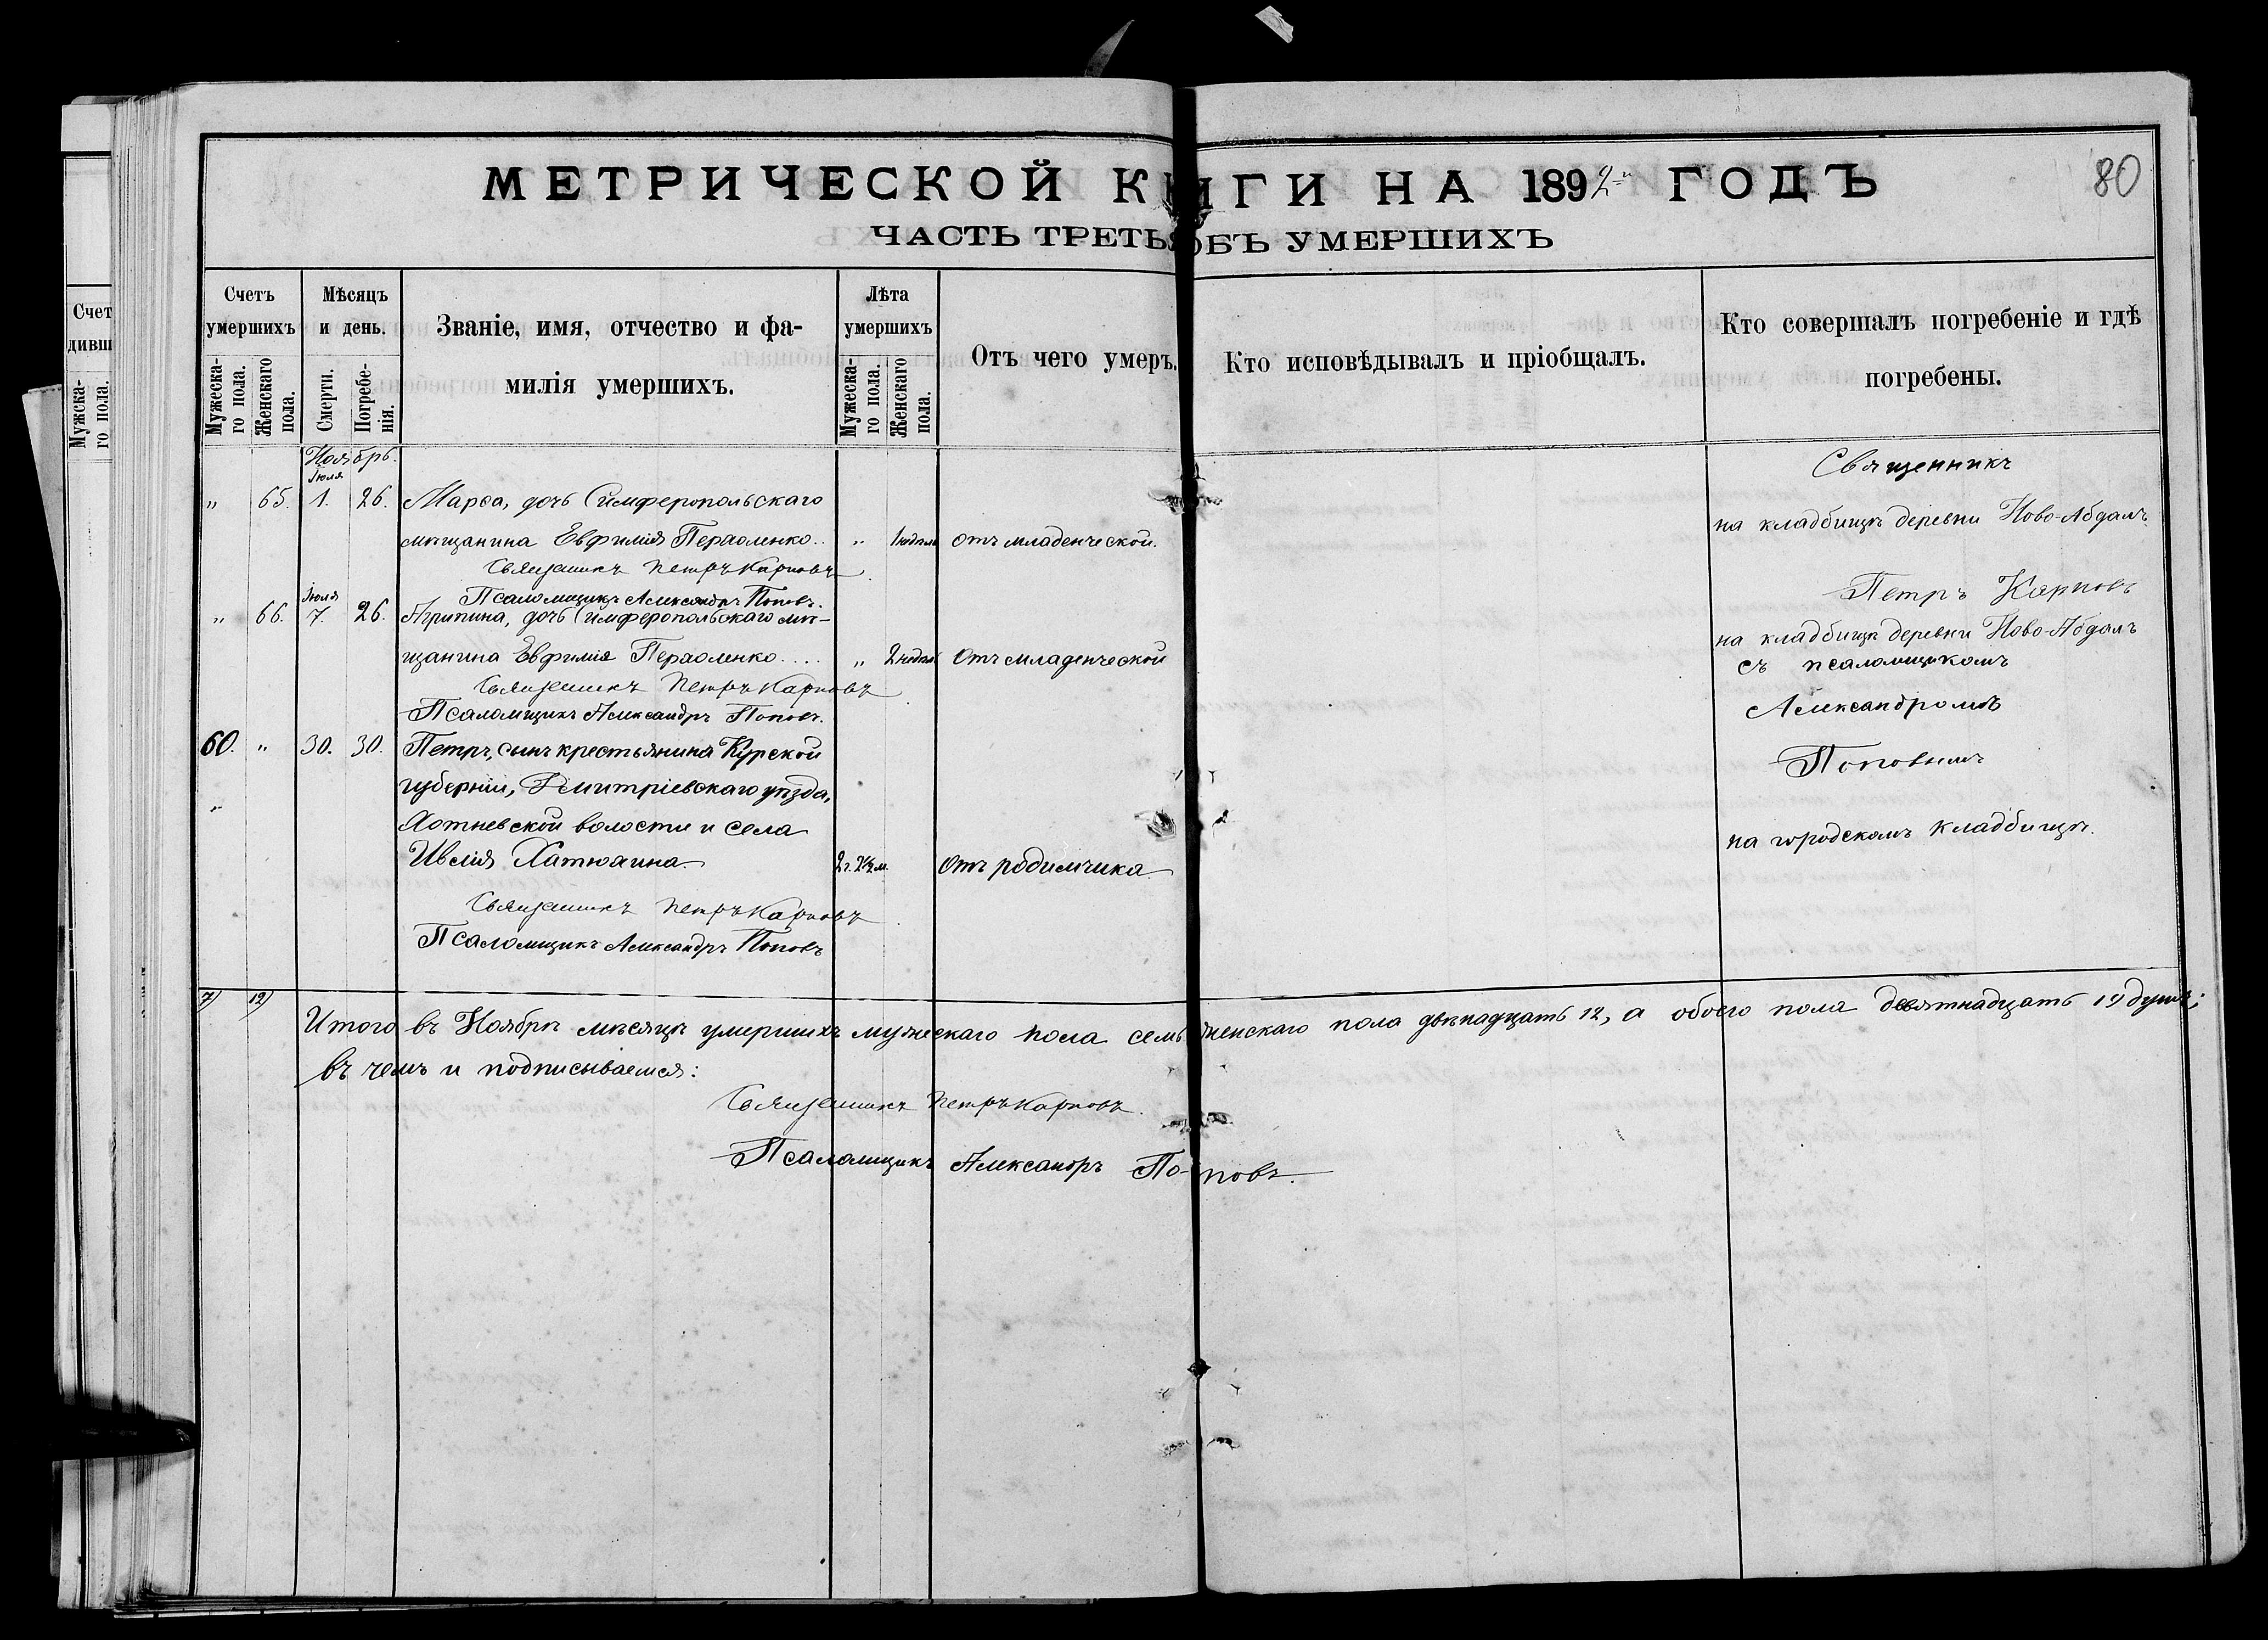 МЕТРИЧЕСКОЙ КНИГИ НА 1892-й ГОДЪ
80
ЧАСТЬ ТРЕТЬЯ ОБЪ УМЕРШИХЪ
Счетъ умершихъ
Мужеска-го пола.
Женскаго пола.
Мѣсяцъ и день.
Смерти.
Погребе-нія.
Званіе, имя, отчество и фа-
милія умершихъ.
Лѣта умершихъ
Мужеска-го пола.
Женскаго пола.
Отъ чего умеръ.
Кто исповѣдывалъ и пріобщалъ.
Кто совершалъ погребеніе и гдѣ
погребены.
Счет
дивш
Мужска-
го пола.
Ноябрь.
Іюля
Священникъ
" 65. 1. 26. Марѳа, дочь Симферопольскаго
на кладбищѣ деревни Ново-Абдалъ
мѣщанина Евфимія " отъ младенческой.
Священникъ Петръ Карповъ
Псаломщикъ Александръ Поповъ.
Петръ Карповъ
Іюля
" 66. 7. 26. Агрипина, дочь Симферопольскаго мѣ-
на кладбищѣ деревни Ново-Абдалъ
щанина Евфимія " отъ младенческой
съ псаломщикомъ
Священникъ Петръ Карповъ
Псаломщикъ Александръ Поповъ.
Александромъ
60. " 30. 30. Петръ, сынъ крестьянина Курской
Поповымъ
губерніи, Дмитріевскаго уѣзда,
волости и села
на городскомъ кладбищѣ.
2 г. 2½ м. отъ родимчика
Священникъ Петръ Карповъ
Псаломщикъ Александръ Поповъ
7) 12)
Итого въ Ноябрѣ мѣсяцѣ умершихъ мужескаго пола семь женскаго пола двѣнадцать 12, а обоего пола девятнадцать 19 душъ;
въ чемъ и подписываемся:
Священникъ Петръ Карповъ.
Псаломщикъ Александръ По-повъ.